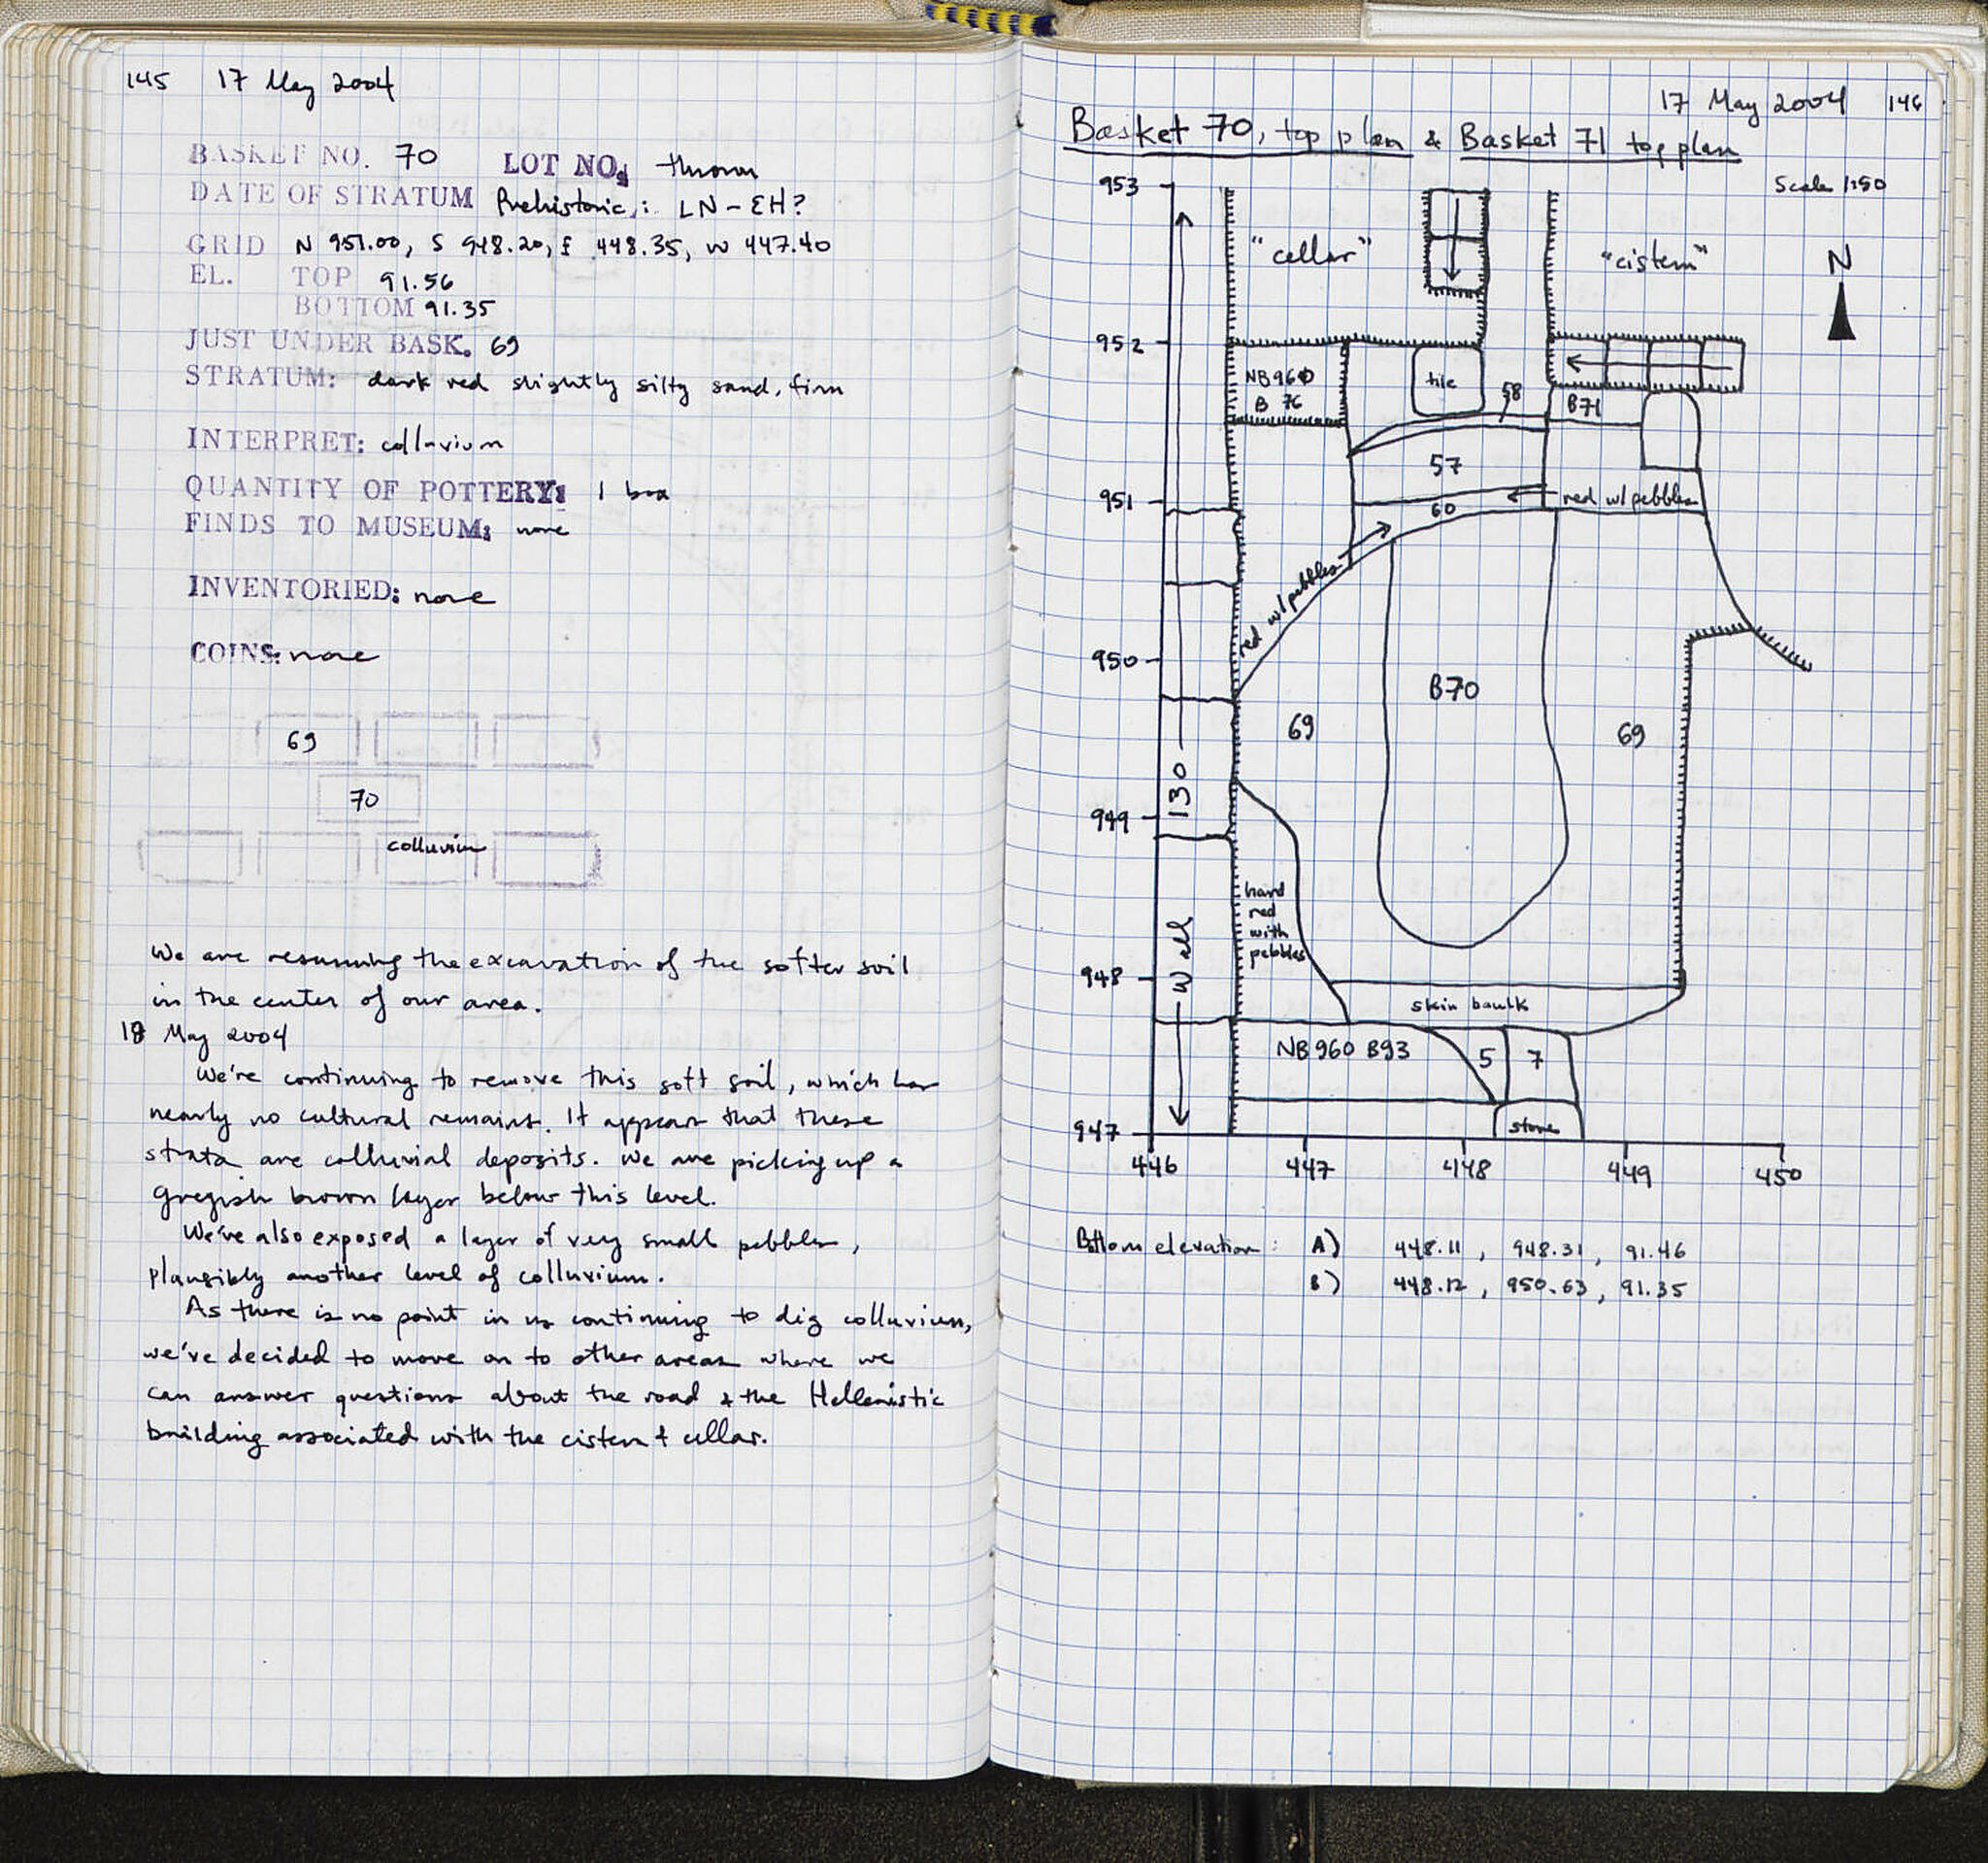 145 17 May 2004
BASKET NO. 70 LOT NO. thrown
DATE OF STRATUM Prehistoric,: LN-EH?
GRID N 951.00, S 948.20, E 448.35, W 447.40
EL. TOP 91.56
BOTTOM 91.35
JUST UNDER BASK. 69
STRATUM: dark red slightly silty sand, firm
INTERPRET: colluvium
QUANTITY OF POTTERY: 1 box
FINDS TO MUSEUM: none
INVENTORIED: none
COINS: none
69
70
colluvium
We are resuming the excavation of the softer soil
in the center of our area.
18 May 2004
We're continuing to remove this soft soil, which has
nearly no cultural remains. It appears that these
strata are colluvial deposits. We are picking up a
greyish brown layer below this level.
We've also exposed a layer of very small pebbles,
plausibly another level of colluvium.
As there is no point in us continuing to dig colluvium,
we've decided to move on to other areas where we
can answer questions about the road & the Hellenistic
building associated with the cistern & cellar.
17 May 2004 146
Basket 70, top plan & Basket 71 top plan
Scale 1:50
953
"cellar"
"cistern"
N
952
NB 960
B 76
tile
58
B71
57
951
red w/pebbles
60
red w/pebbles
950
B70
69
69
130
949
hard
red
with
pebbles
Wall
948
skin baulk
NB 960 B93
5
7
stone
947
446 447 448 449 450
Bottom elevation: A) 448.11, 948.31, 91.46
B) 448.12, 950.63, 91.35